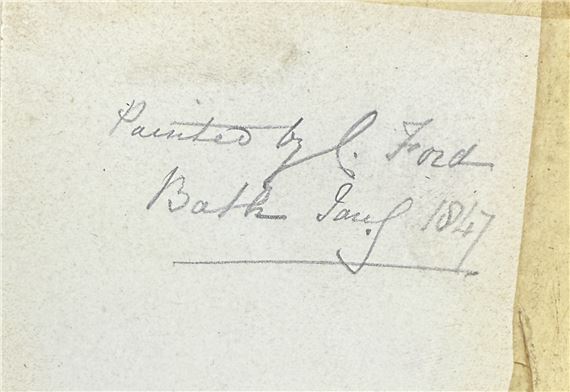 Painted by C. Ford
Bath Jany 1847